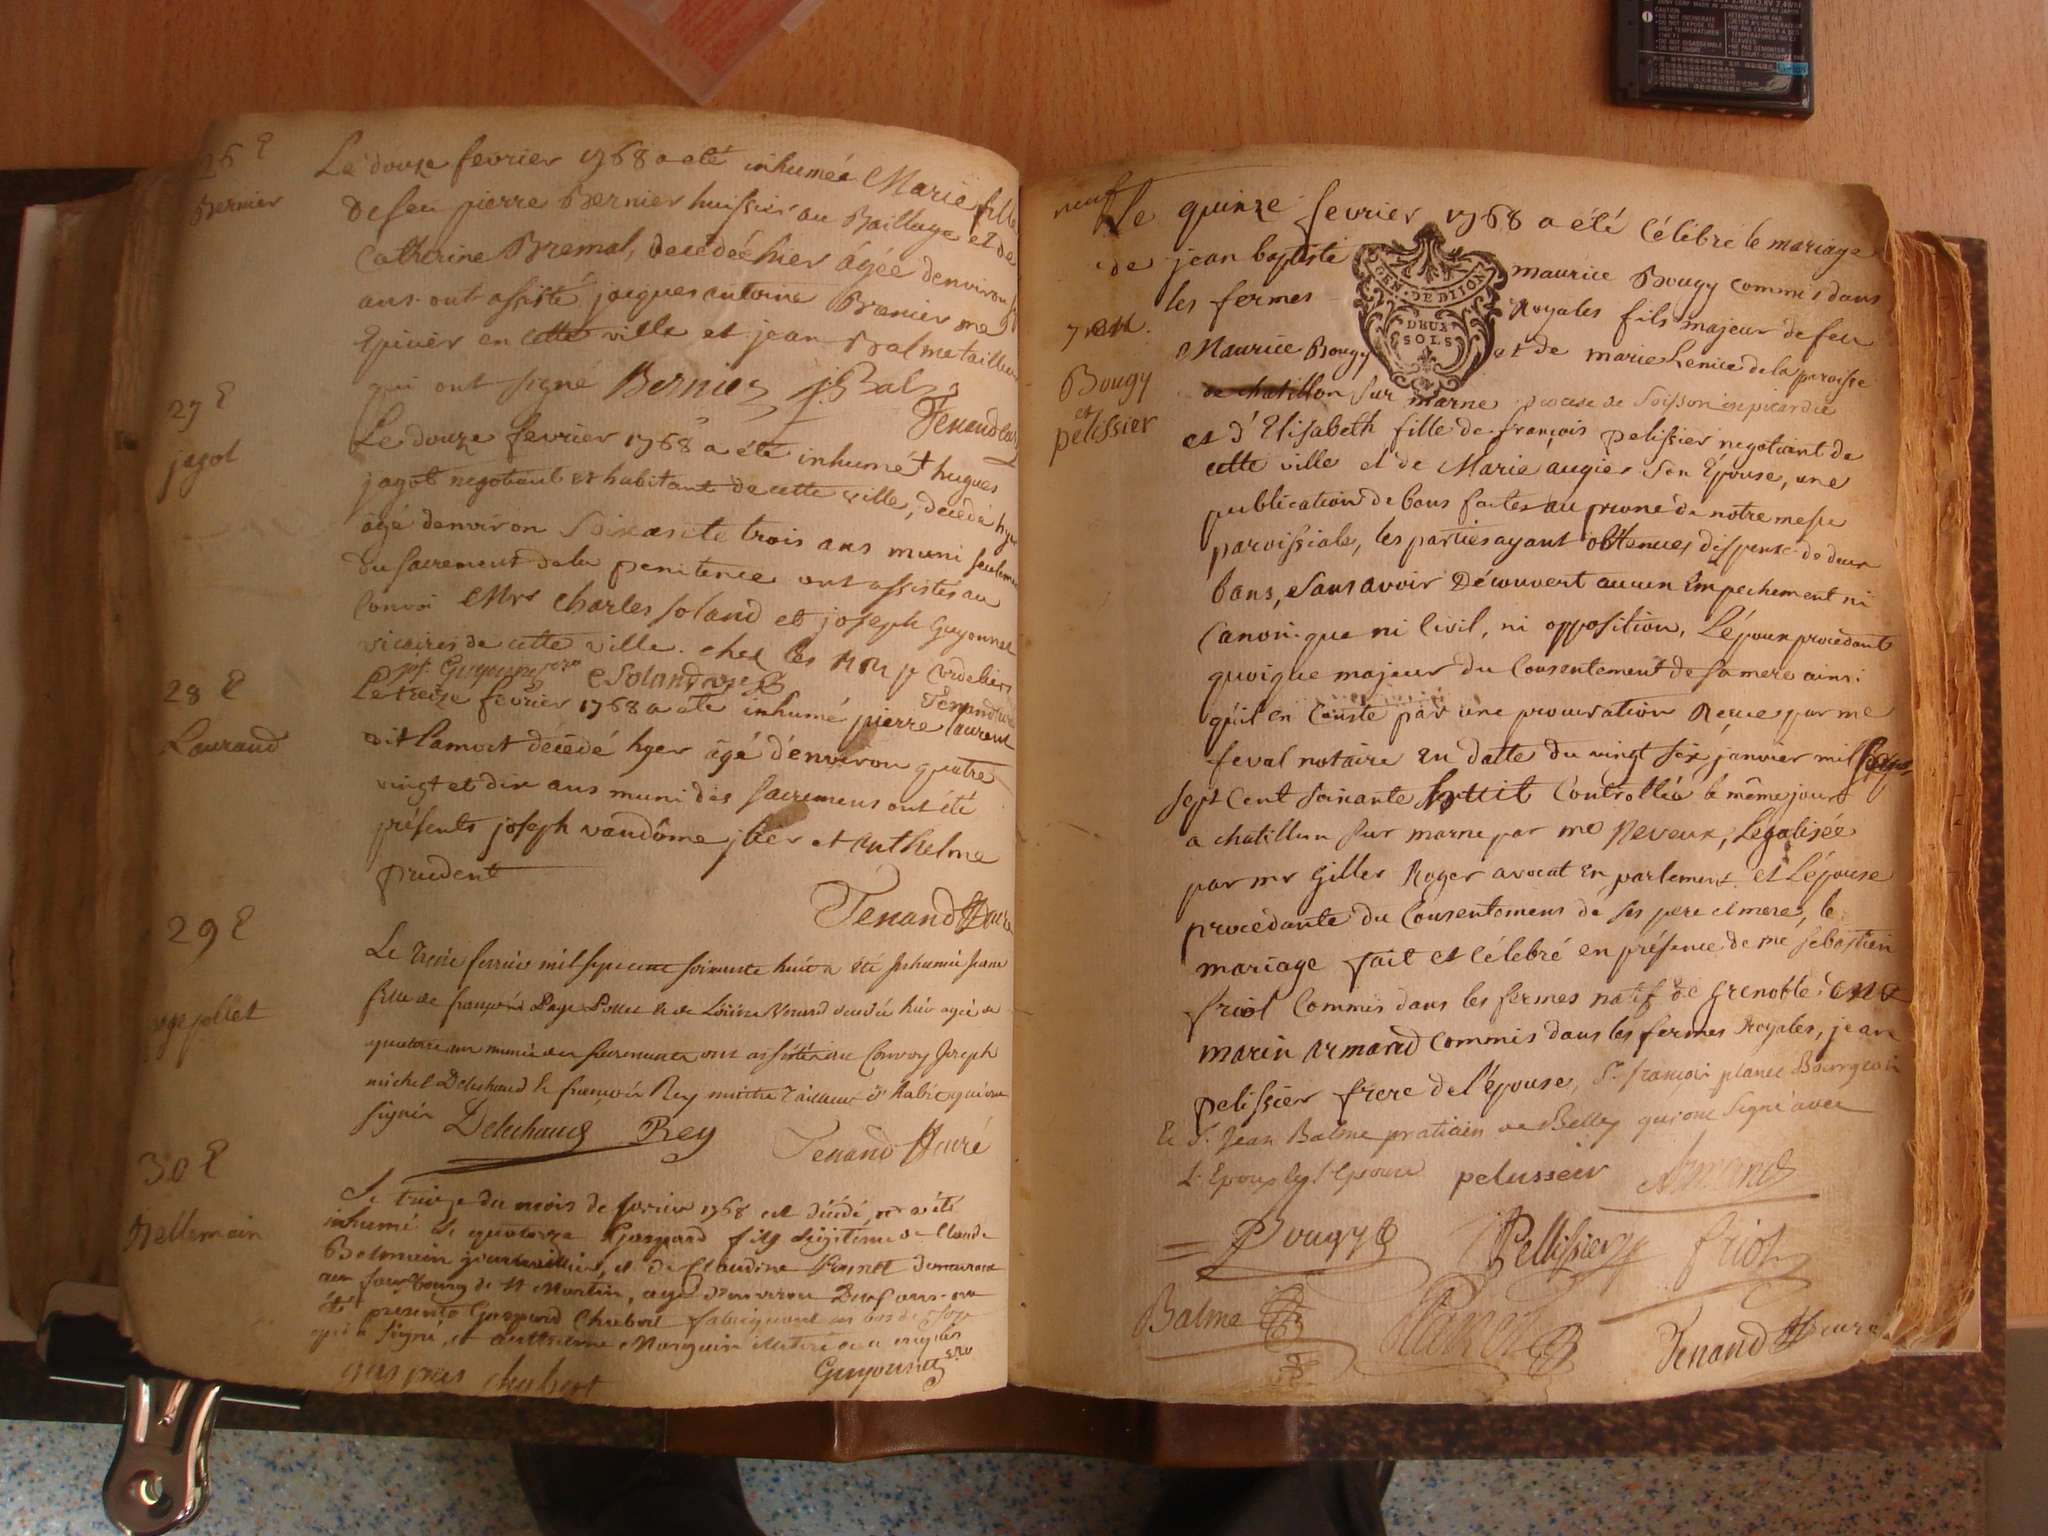 26 E
Bernier
Le douze fevrier 1768 a eté inhumée Marie fille
de feu pierre Bernier huissier au Baillage et de
Catherine Bremal, decedée hier âgée denviron
ans. ont assisté jacques antoine Bernier me
Epicier en cette ville et jean Balme tailleur
qui ont signé Bernier j. Balme
Tenand curé
27 E
jagot
Le douze fevrier 1768 a été inhumé hugues
jagot negotiant et habitant de cette ville, decedé hyer
âgé denviron soixante trois ans muni seulement
du sacrement de la penitence ont assistés au
convoi Mrs charles soland et joseph Guyonnet
vicaires de cette ville. chez les RR pp Cordeliers
jos. Guyonnet vre C Soland vre
Tenand curé
28 E
Laurand
Le treize fevrier 1768 a ete inhumé pierre laurent
dit lamort décédé hyer âgé d'environ quatre
vingt et dix ans muni des sacremens ont été
présents joseph vandôme et Anthelme
prudent
Tenand Curé
29 E
pollet
Le treize fevrier mil sept cent soixante huit a été Inhumée
fille de françois Page Pollet et de Loüise decedée hier agée de
quatorze ans munie des sacremens ont assisté au Convoy Joseph
michel Deluhaud & françois Rey maitre Tailleur d'habits qui ont
signés Deluhaud Rey Tenand Curé
30 E
Bellemain
Le treize du mois de fevrier 1768 est décédé, et a été
inhumé le quatorze Gaspard fils légitime de Claude
Belemain journallier, et de Claudine demeurant
au fauxbourg de St Martin, agé d'environ Deux ans. ont
été présents Gaspard Chubert fabriquant en bas de
qui a signé, et anthelme Monguin illitéré de ce enquis
gaspard chubert Guyonnet vre
neuf
Le quinze fevrier 1768 a été célébré le mariage
de jean baptiste maurice Bougy commis dans
les fermes Royales fils majeur de feu
GEN. DE DIJON
DEUX
SOLS
Maurice Bougy et de marie Lenice de la paroisse
Bougy
et
pelissier
de chatillon sur marne diocese de Soisson en picardie
et d'Elisabeth fille de françois pelissier negotiant de
cette ville et de Marie augier son Epouse, une
publication de bans faites au prone de notre messe
paroissiale, les parties ayant obtenues dispense de deux
bans, sans avoir Découvert aucun Empechement ni
Canonique ni Civil, ni opposition, L'époux procedant
quoique majeur du Consentement de sa mere ainsi
qu'il en Conste par une procuration Reçue par me
feval notaire en datte du vingt six janvier mil
sept cent soixante huit Controllée le même jour
a chatillon sur marne par me Neveux, Legalisée
par mr Gilles Roger avocat en parlement. et L'épouse
procédante du Consentement de ses pere et mere, le
mariage fait et célébré en présence de mr Sebastien
friol Commis dans les fermes natif de Grenoble,
marin armand commis dans les fermes Royales, jean
pelissier frere de l'épouse, Sr. françois planet Bourgeois
& Sr. Jean Balme praticien de Belley qui ont signé avec
L'Epoux & L'Epouse pelusseir Armand
Bougy Pellissier friol
Balme Planet Tenand Curé